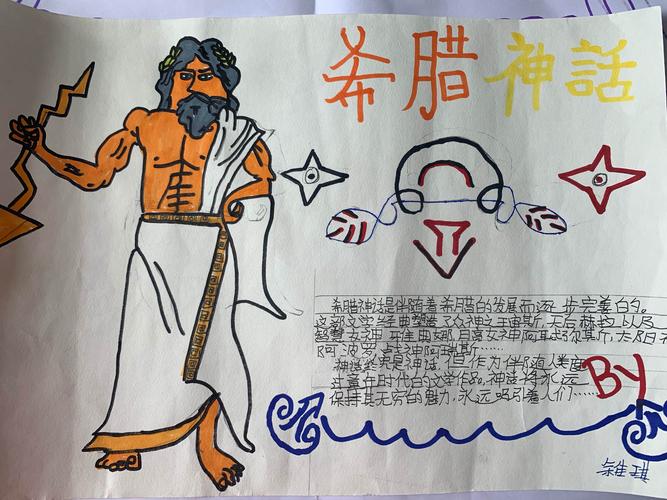 希腊神話
希腊神话是伴随着希腊的发展而逐步完善的。
这部文学经典塑造了众神之王宙斯,天后赫拉以及
智慧女神雅典娜,月亮女神阿耳忒弥斯,太阳
阿波罗,战神阿瑞斯……
神话终究是神话,但作为伴随人类度
过童年时代的文学作品,神话将永远
保持其无穷的魅力,永远吸引着人们……
BY